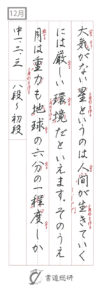 12月
大気がない星というのは人間が生きていく
には厳しい環境だといえます。そのうえ
月は重力も地球の六分の一程度しか
中一、二、三 八段〜初段
書道総研